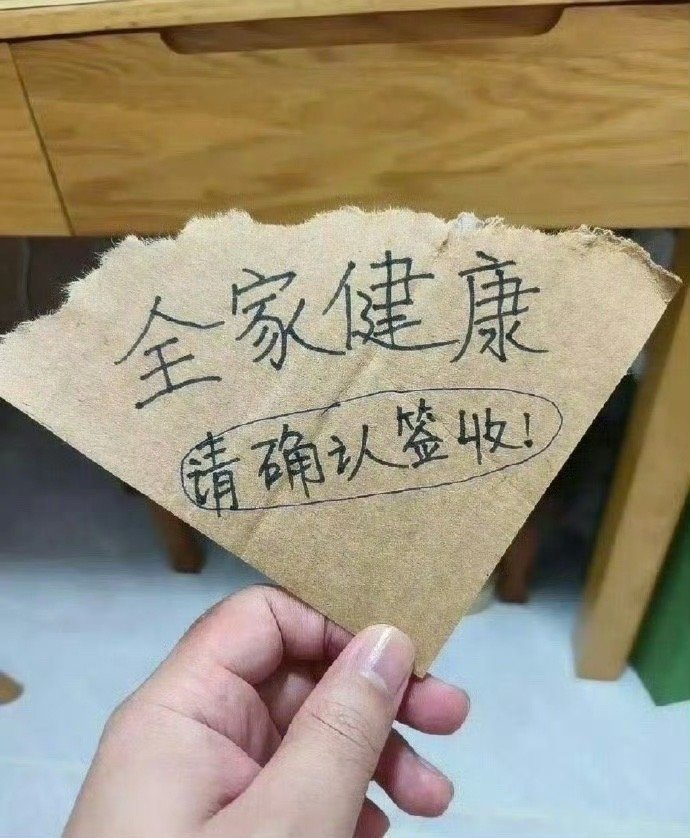 全家健康
请确认签收!